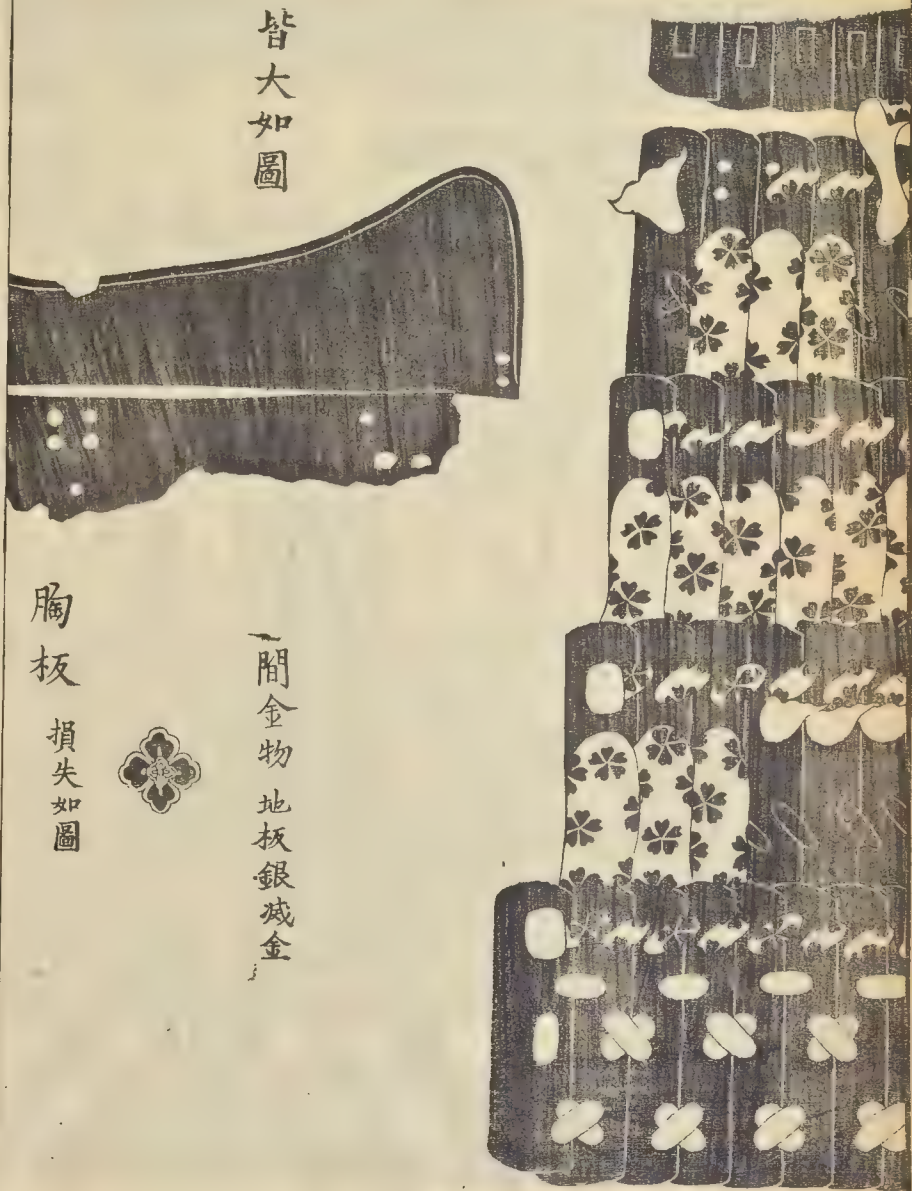 皆大如圖
一間金物 地板銀减金
胸板 損失如圖